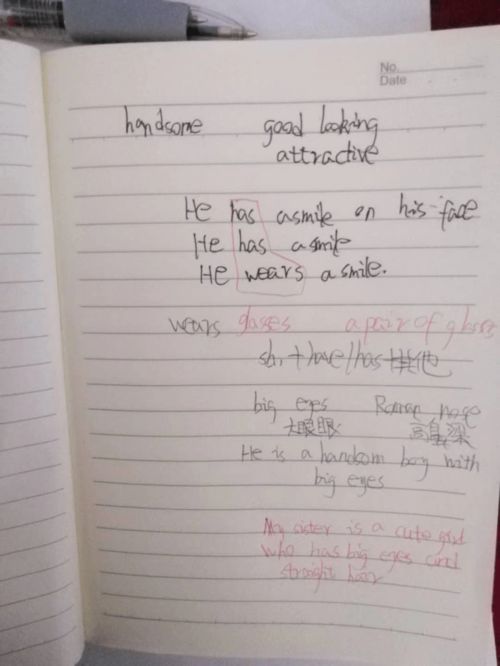 No.
Date
handsome good looking
attractive
He has a smile on his face
He has a smile
He wears a smile.
wears glasses a pair of glasses
sb, + have/has + 其他
big eyes Roman nose
大眼眼 高鼻梁
He is a handsom boy with
big eyes
My sister is a cute girl
who has big eyes and
straight hair